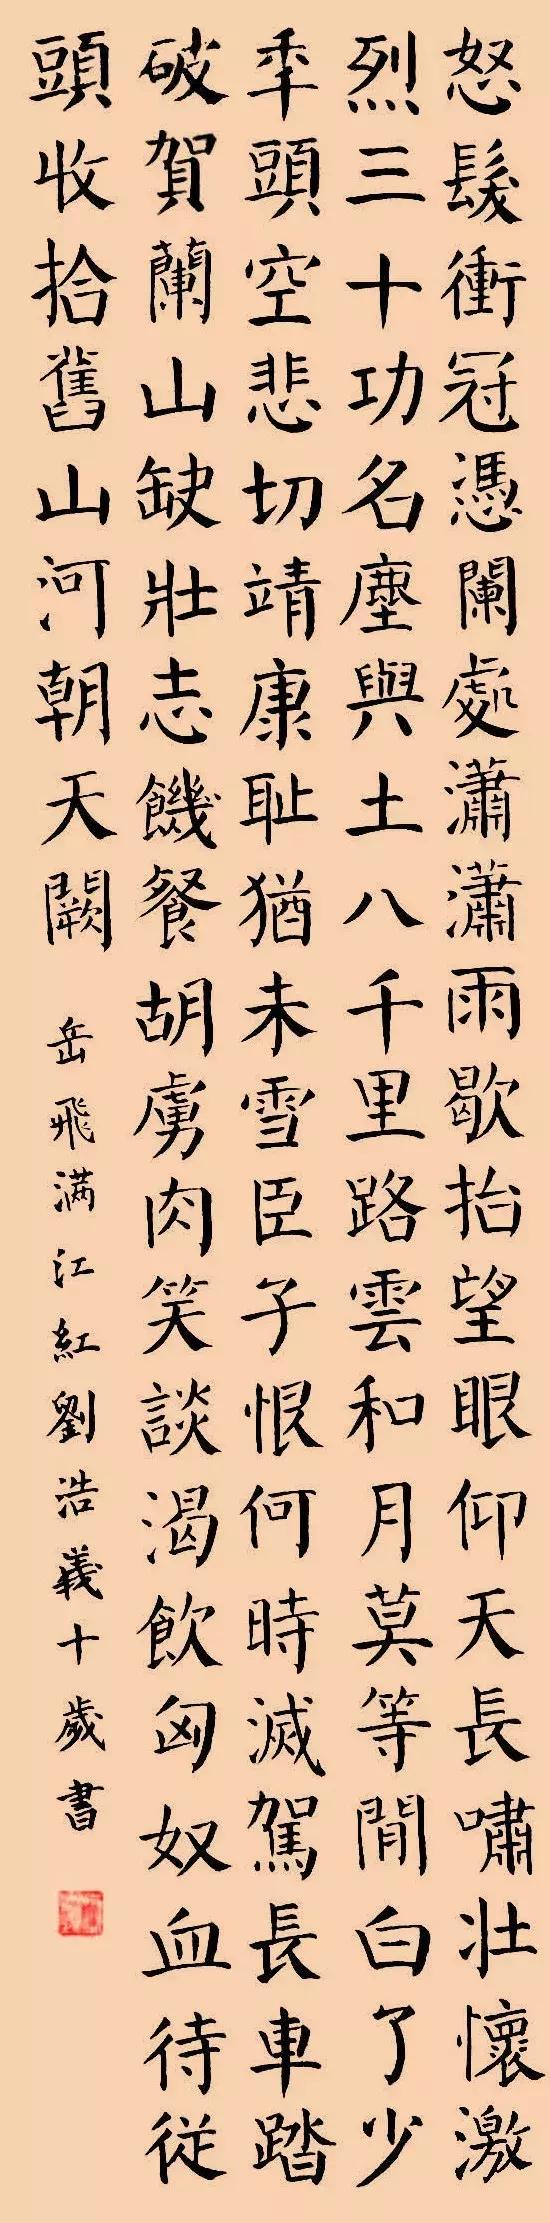 怒髮衝冠憑闌處瀟瀟雨歇抬望眼仰天長嘯壯懷激
烈三十功名塵與土八千里路雲和月莫等閒白了少
年頭空悲切靖康耻猶未雪臣子恨何時滅駕長車踏
破賀蘭山缺壯志饑餐胡虜肉笑談渴飲匈奴血待從
頭收拾舊山河朝天闕
岳飛满江紅劉浩義十歲書